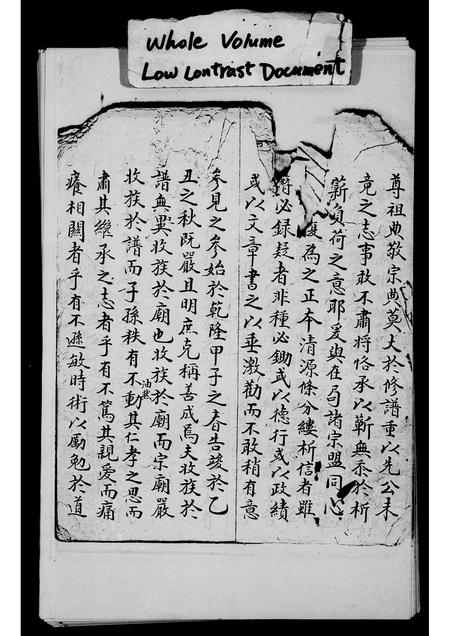 Whole Volume
Low Contrast Document
尊祖典敬宗典莫大於修譜重以先公未
竟之志事敢不肅將恪承以蘄無忝於析
薪負荷之意耶爰與在局諸宗盟同心
度為之正本清源條分縷析信者雖
必錄疑者非種必鋤或以德行或以政績
或以文章書之以垂激勸而不敢稍有意
參見之參始於乾隆甲子之春告竣於乙
丑之秋既嚴且明庶克稱善成焉夫收族於
譜無異收族於廟也收族於廟而宗廟嚴
收族於譜而子孫秩有不動其仁孝之思而
油然
肅其繼承之志者乎有不篤其親愛而痛
癢相關者乎有不遜敏時術以勵勉於道